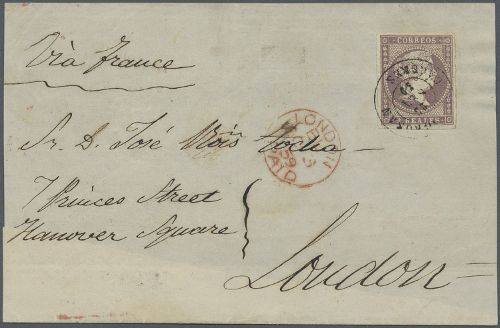 Via France
CORREOS
REALES
LONDON
PAID
Sr. D. José
7 Princes Street
Hanover Square
London